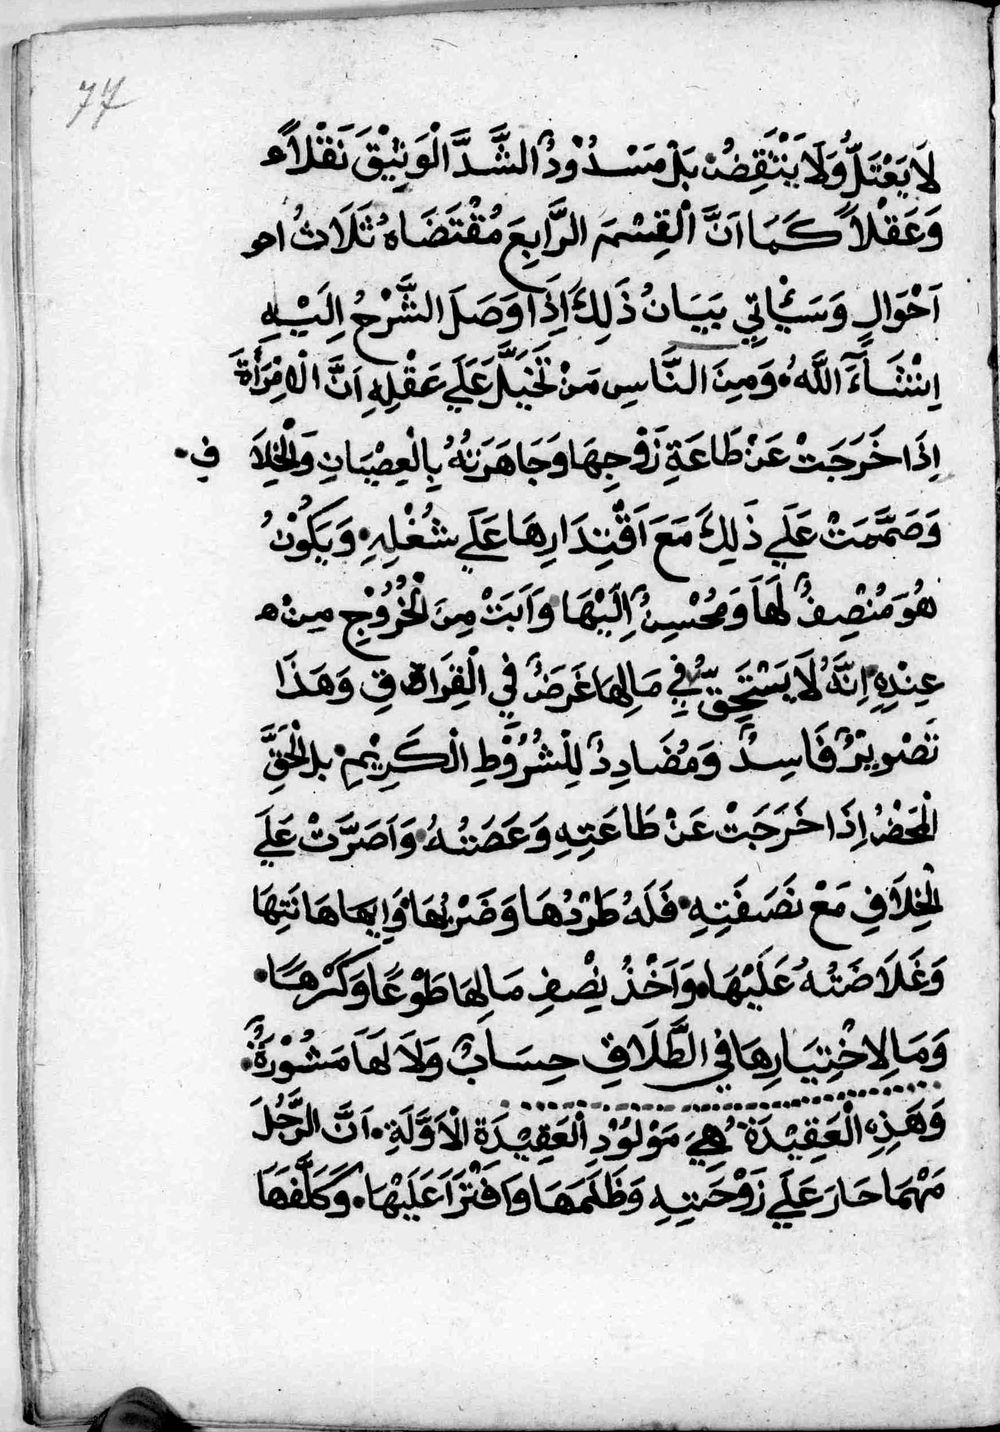 77
لَا يَعْتَلُّ وَلَا يَنْتَقِضُ بَلْ مَسْدُوْدٌ الشَّدَّ الْوَثِيْقَ نَقْلاً
وَعَقْلاً كَمَا اَنَّ الْقِسْمَ الرَّابِعَ مُقْتَضَاهُ ثَلَاثُ احو
اَحْوَالٍ وَسَيْاتِي بَيَانُ ذَلِكَ اِذَا وَصَلَ الشَّرْحُ اِلَيْهِ
اِنْشَآءَ اللَّهُ وَمِنَ النَّاسِ مَنْ تَخَيَّلَ عَلَي عَقْلِهِ اَنَّ الْامْرَأَةَ
اِذَا خَرَجَتْ عَنْ طَاعَةِ زَوْجِهَا وَجَاهَرَتْهُ بِالْعِصْيَانِ وَالْخِلَا فِ
وَصَمَّمَتْ عَلَي ذَلِكَ مَعَ اَقْتِدَارِهَا عَلَي شُغْلِهِ وَيَكُوْنُ
هُوَ مُنْصِفٌ لَهَا وَمُحْسِنٌ اِلَيْهَا وَاَبَتْ مِنَ الْخُرُوْجِ مِنْ
عِنْدِهِ اِنَّهُ لَا يَسْتَحِقُّ فِي مَالِهَا غَرَضٌ فِي الْفِرَاقِ وَهَذَا
تَصْوِيْرٌ فَاسِدٌ وَمُضَادِدٌ لِلْشُرُوْطِ الْكَرِيْمِ بل الْحَقِّ
الْمَحْضُ اِذَا خَرَجَتْ عَنْ طَاعَتِهِ وَعَصَتْهُ وَاَصَرَّتْ عَلَي
الْخِلَافِ مَعْ نَصَفَتِهِ فَلَهُ طَرْدُهَا وَضَرْبُهَا وَاِهَانَتِهَا
وَغَلَاضَتُهُ عَلَيْهَا وَاَخْذُ نِصْفِ مَالِهَا طَوْعًا وَكَرْهًا
وَمَا لِاخْتِيَارِهَا فِي الطَّلَاقِ حِسَابٌ وَلَا لَهَا مَشُوْرَةٌ
وَهَذِهِ الْعَقِيْدَةُ هِيَ مَوْلُوْدِ الْعَقِيْدَةِ الْاَوَّلَةِ اَنَّ الرَّجُلَ
مَهْمَا جَارَ عَلَي زَوْجَتِهِ وَظَلَمَهَا وَاَفْتَرَا عَلَيْهَا وَكَلَّفَهَا